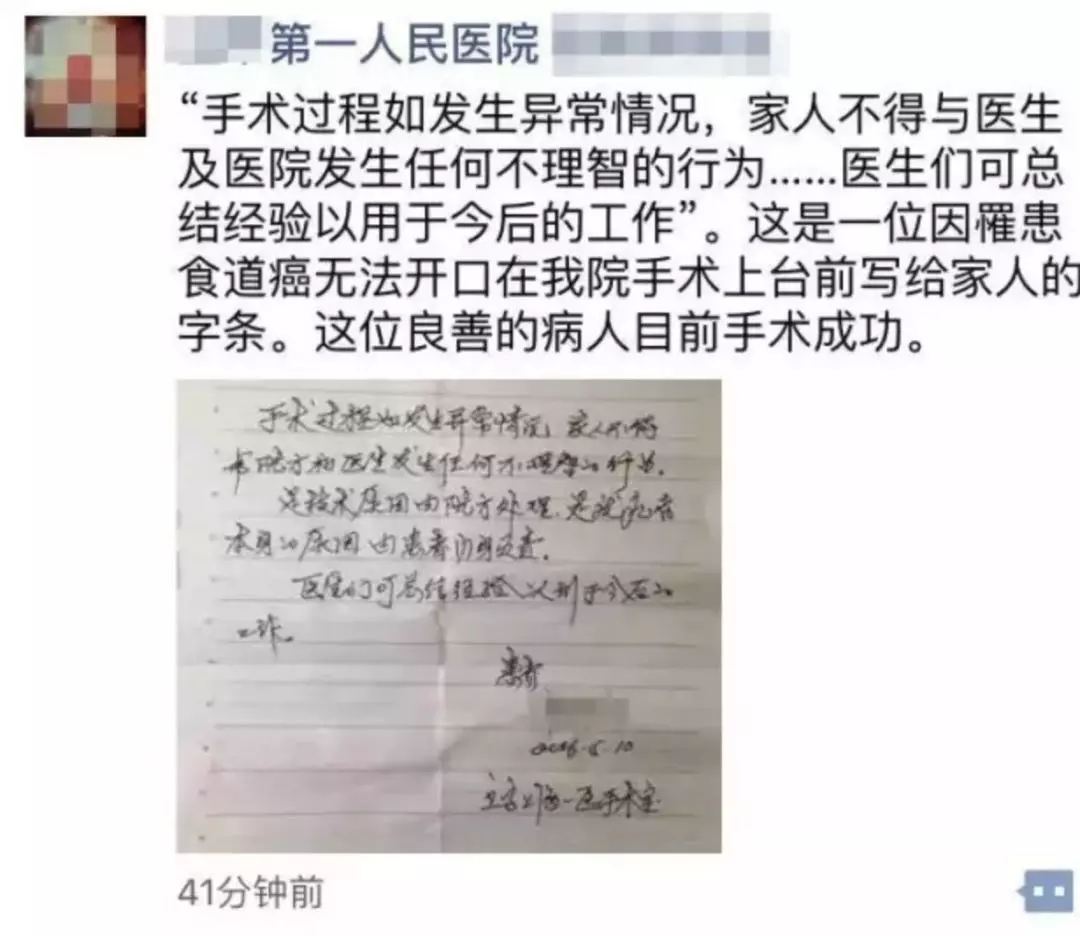 第一人民医院
“手术过程如发生异常情况，家人不得与医生
及医院发生任何不理智的行为……医生们可总
结经验以用于今后的工作”。这是一位因罹患
食道癌无法开口在我院手术上台前写给家人的
字条。这位良善的病人目前手术成功。
手术过程如发生异常情况, 家人不得
与院方和医生发生任何不理智的行为.
是技术原因由院方处理.是
本身的原因由患者负责.
医生们可总结经验以利于今后的
工作。
患者
5.10
一医手术室
41分钟前